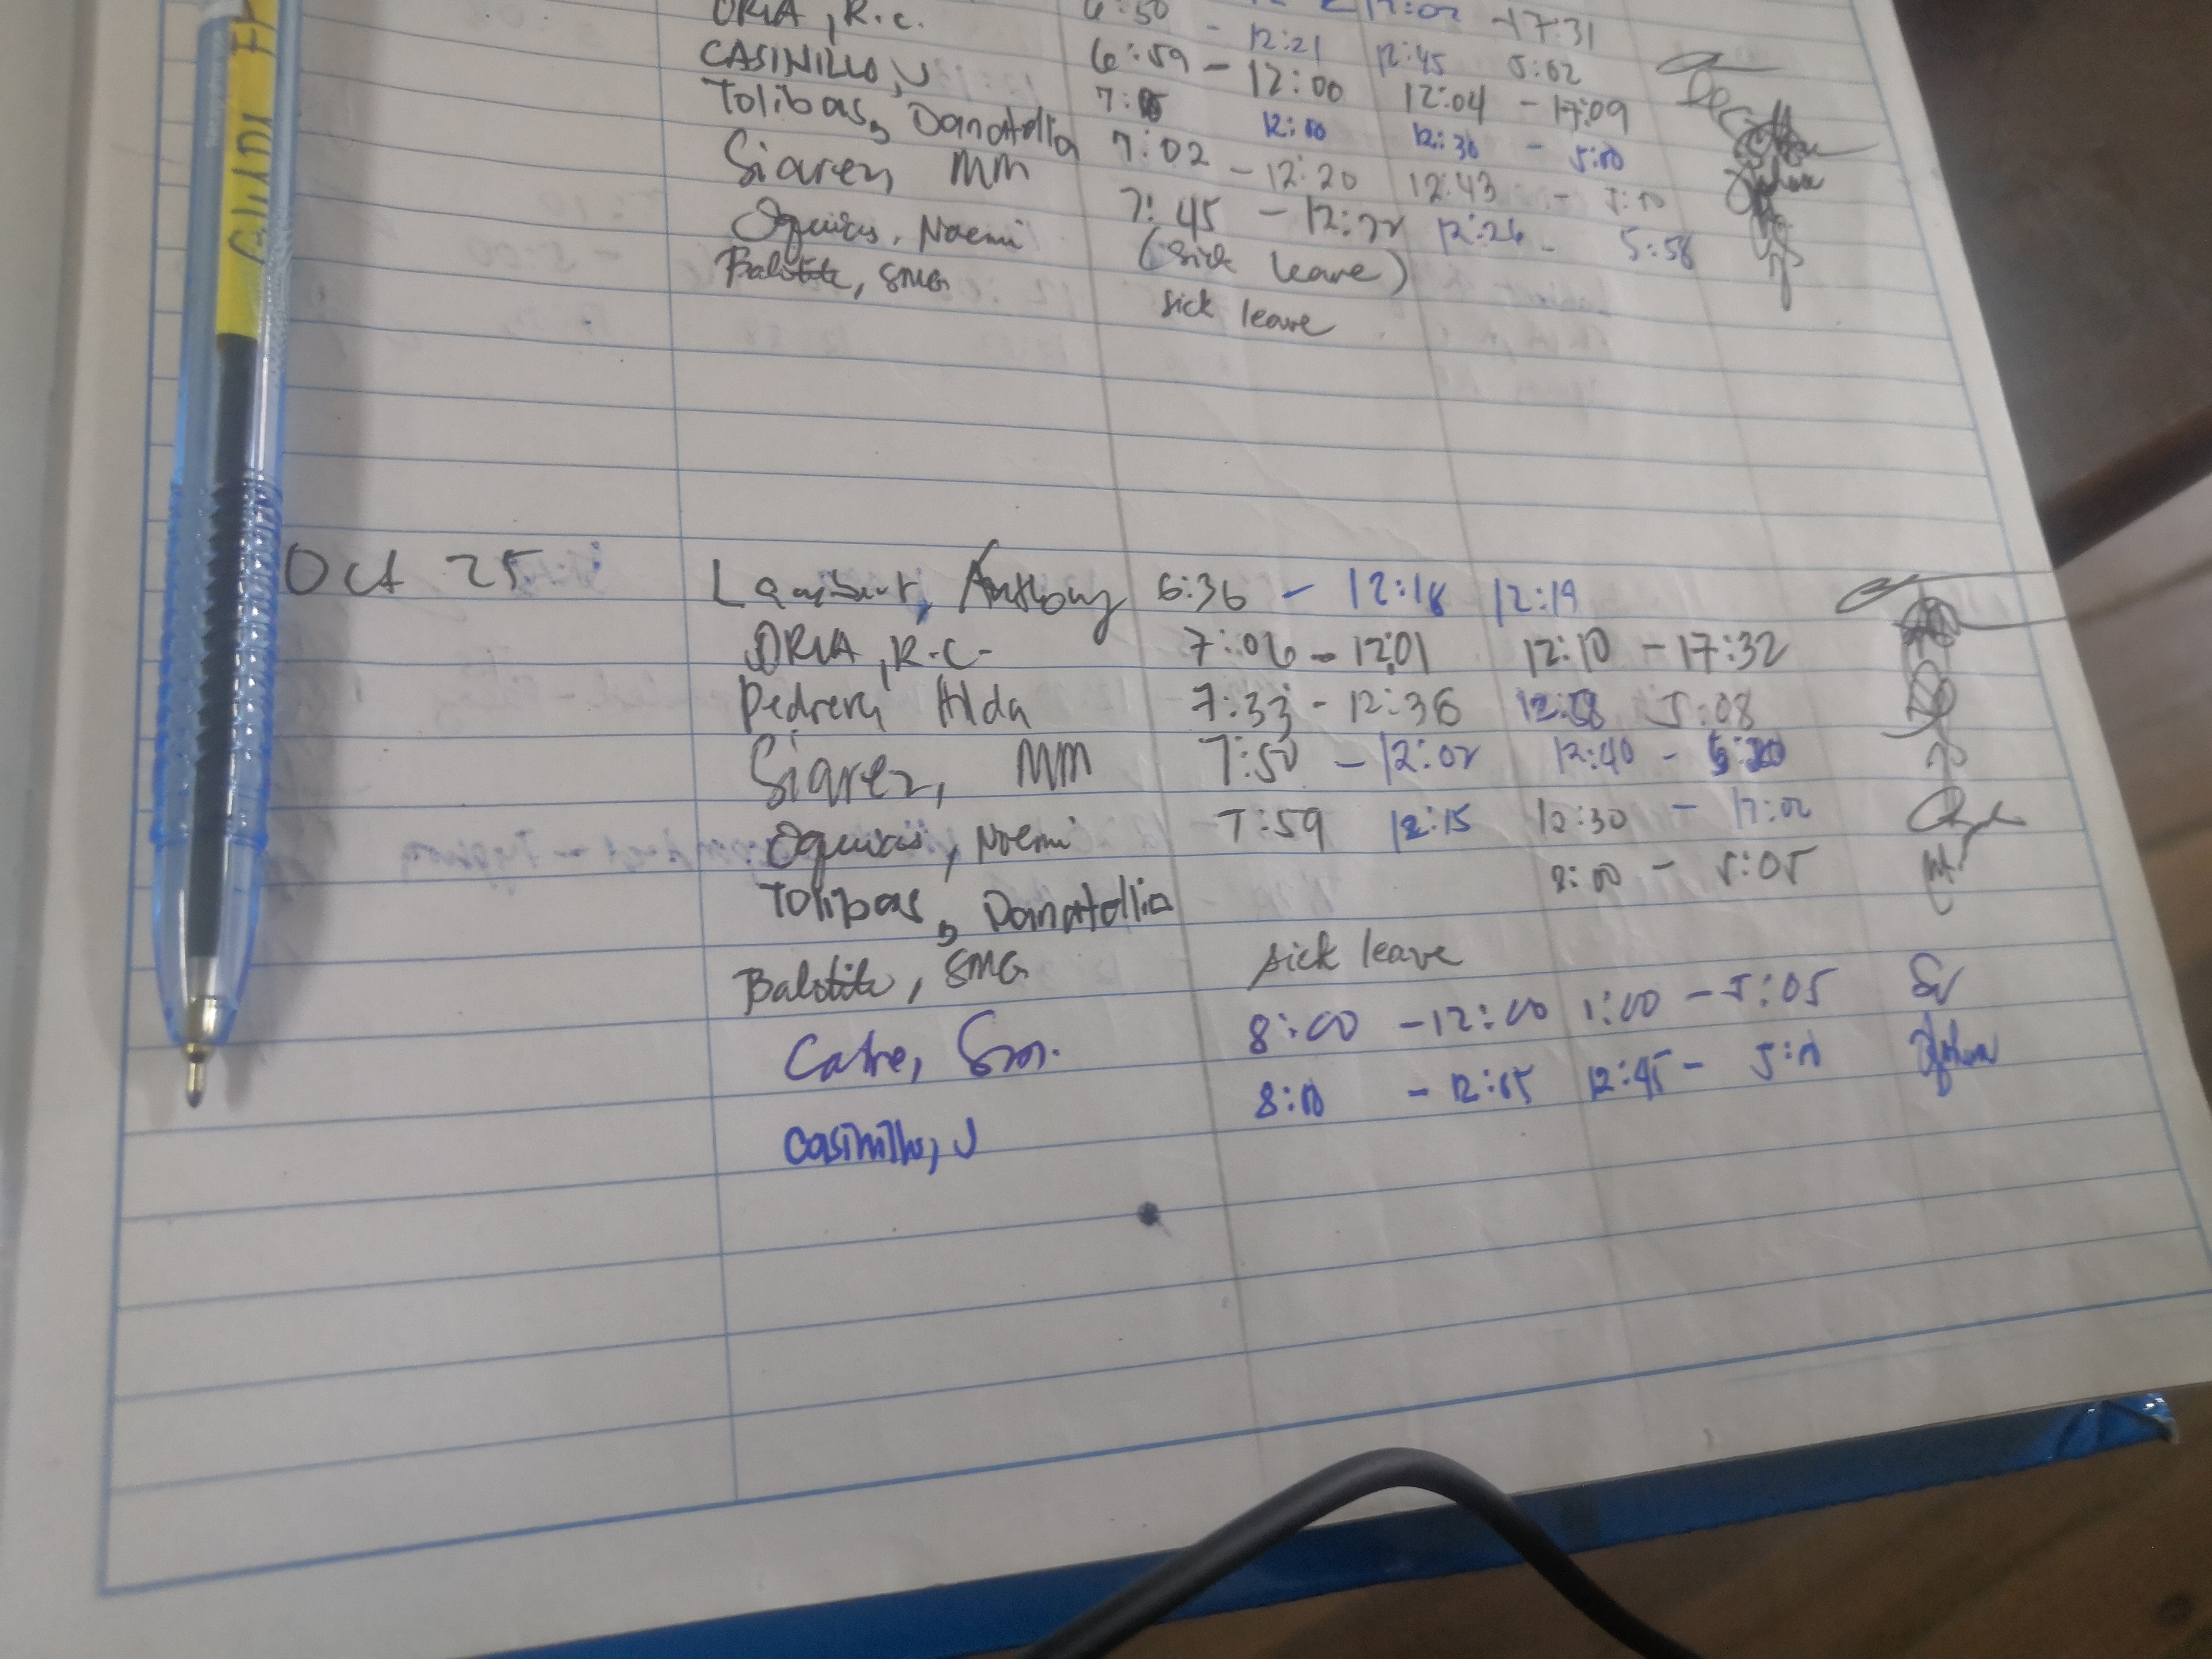 ORIA, R.C. 6:50 12:02 -17:31
CASINILLO, J 6:59 - 12:21 12:45 5:02
Tolibas, Danatollia - 12:00 12:04 - 17:09
Siarez, MM 7:02 12:10 12:30 - 5:00
Oquias, Noemi 7:45 - 12:20 12:43 -
Balotite, SMG (Sick leave) - 12:22 12:26 - 5:58
sick leave
Oct 25 Anthony 6:36 - 12:18 12:19
ORIA, R.C. 7:06 - 12:01 12:10 - 17:32
Pedrera Hilda 7:33 - 12:36 12:58 5:08
Siarez, MM 7:50 - 12:02 12:40 -
Oquias, Noemi 7:59 12:15 12:30 - 17:02
Tolibas, Danatollia - 5:05
Balotite, SMG sick leave
Catre, Sm. 8:00 - 12:00 1:00 - 5:05
Casinillo, J 8:00 - 12:05 12:45 -